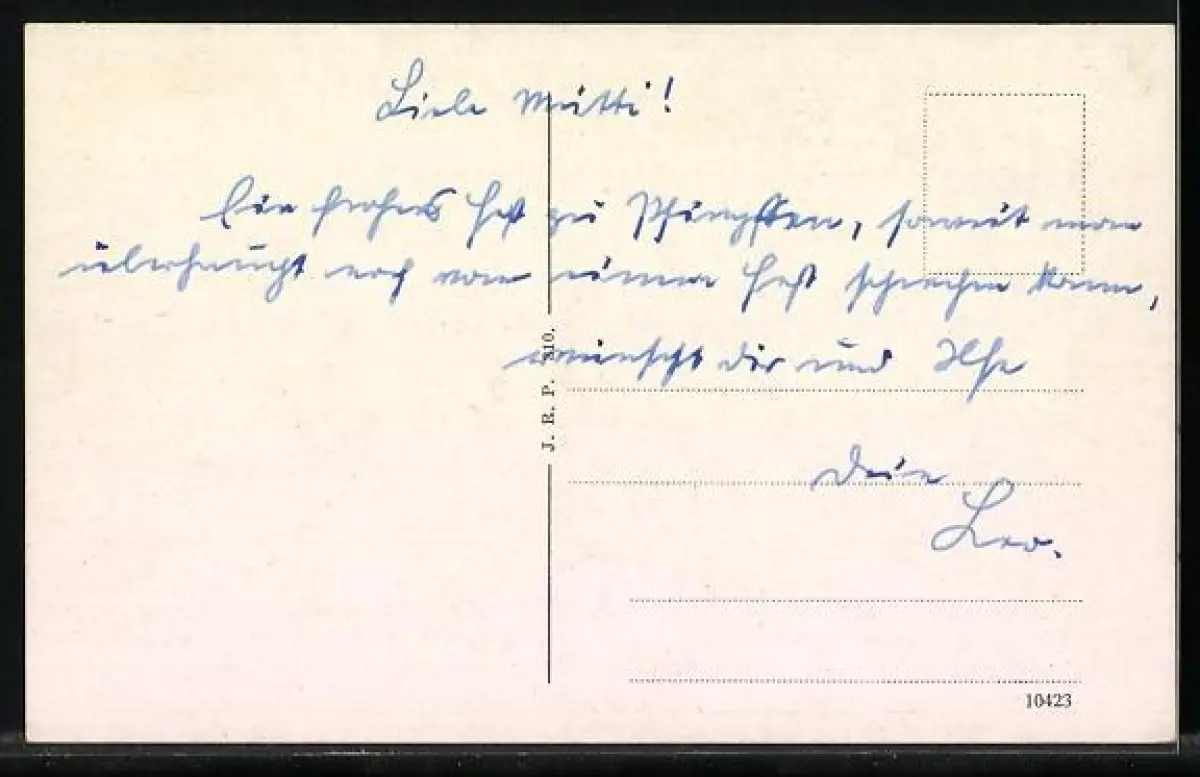 Liebe Mutti!
Ein frohes Fest zu Pfingsten, soweit man
überhaupt noch von einem Fest sprechen kann,
wünscht dir und Ilse
Dein
Leo.
J. R. P. 310.
10423